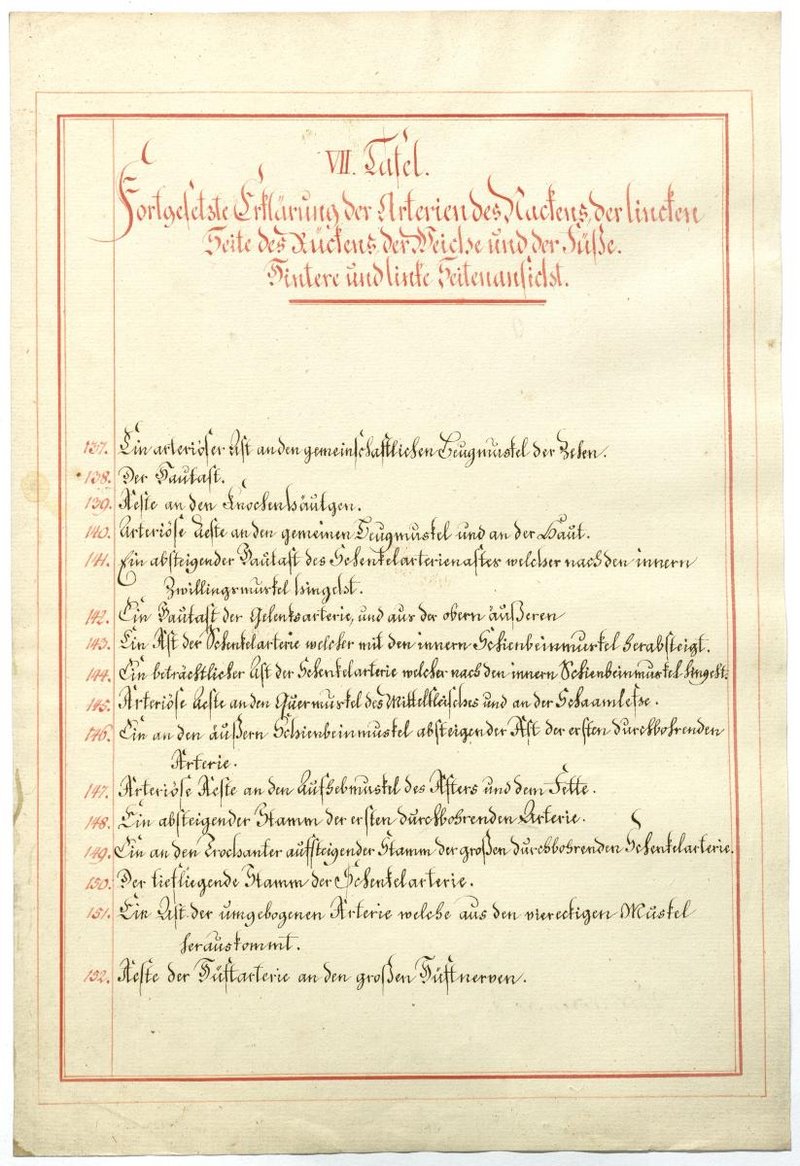 VII. Tafel.
Fortgesetzte Erklärung der Arterien des Nackens, der lincken
Seite des Rückens, der Weiche und der Füße.
Hintere und linke Seitenansicht.
137. Ein arteriöser Ast an den gemeinschaftlichen Beugmuskel der Zehen.
138. Der Hautast.
139. Aeste an den Knochenhäutgen.
140. Arteriöse Aeste an den gemeinen Beugmuskel und an der Haut.
141. Ein absteigender Hautast des Schenkelarterienastes welcher nach den innern
Zwillingsmuskel hingeht.
142. Ein Hautast der Gelenksarterie, und aus der obern äußeren
143. Ein Ast der Schenkelarterie welcher mit den innern Schienbeinmuskel herabsteigt.
144. Ein beträchtlicher Ast der Schenkelarterie welcher nach den innern Schienbeinmuskel hingeht.
145. Arteriöse Aeste an den Quermuskel des Mittelfleisches und an der Schaamlefze.
146. Ein an den äußern Schienbeinmuskel absteigender Ast der ersten durchbohrenden
Arterie.
147. Arteriöse Aeste an den Aufhebmuskel des Afters und dem Fette.
148. Ein absteigender Stamm der ersten durchbohrenden Arterie.
149. Ein an den Trochanter aufsteigender Stamm der großen durchbohrenden Schenkelarterie.
150. Der tiefliegende Stamm der Schenkelarterie.
151. Ein Ast der umgebogenen Arterie welche aus den viereckigen Muskel
herauskommt.
152. Aeste der Hüftarterie an den großen Hüftnerven.